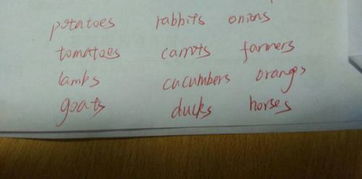 potatoes rabbits onions
tomatoes carrots farmers
lambs cucumbers oranges
goats ducks horses